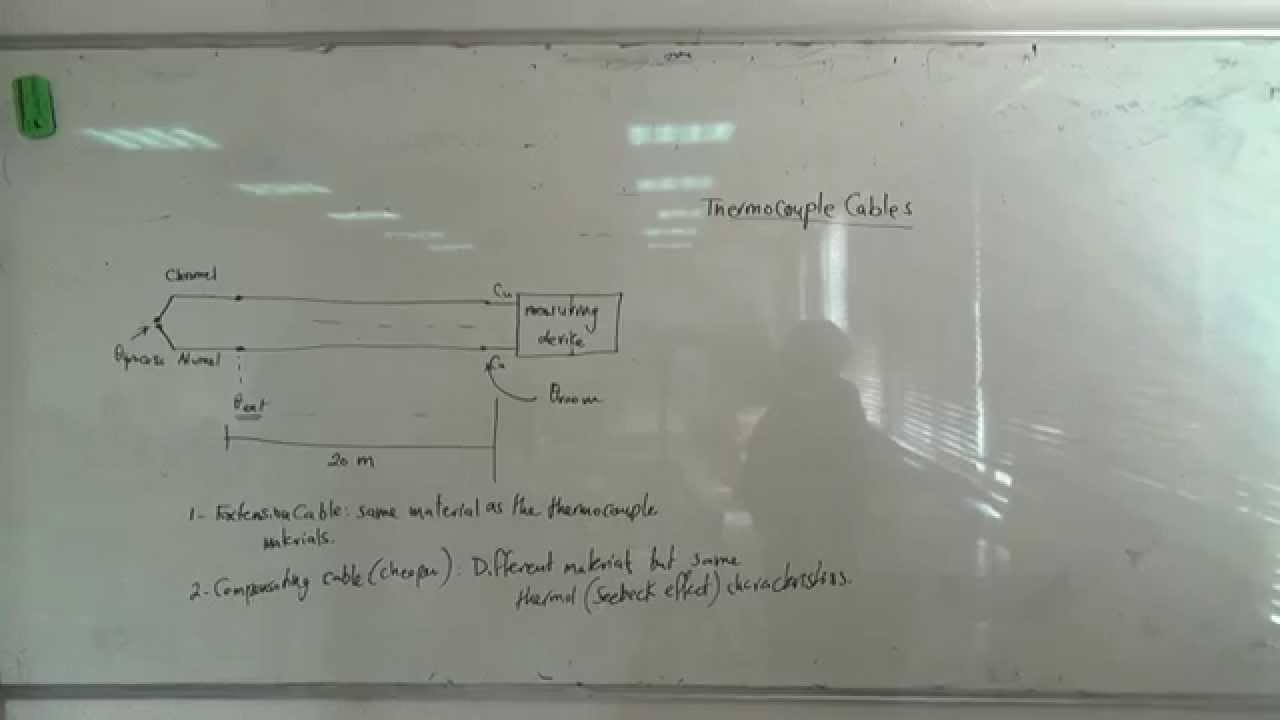 Thermocouple Cables
Chromel
Cu
measuring
device
θprocess
Alumel
Cu
θext
θroom
20 m
1- Extension Cable: same material as the thermocouple
materials.
2- Compensating cable (cheaper): Different material but same
thermal (Seebeck effect) characteristics.